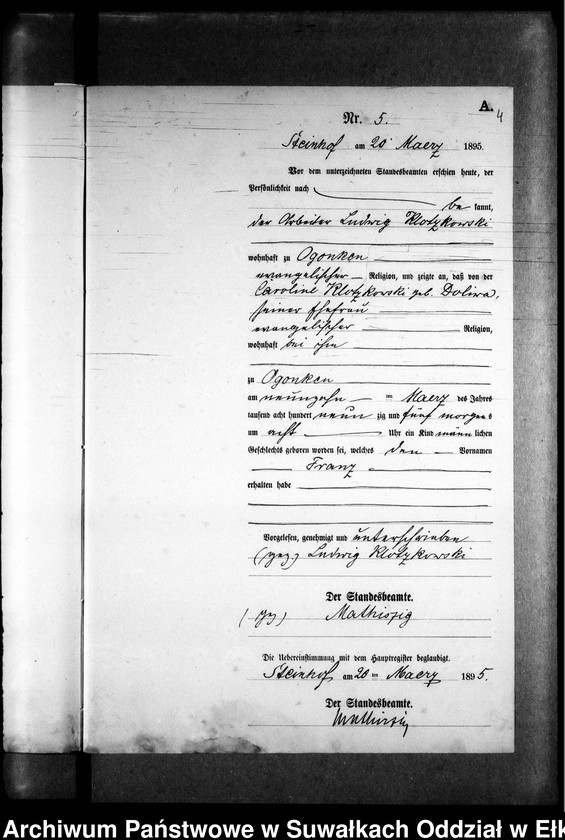 A.
4
Nr. 5.
Steinhof am 20 Maerz 1895.
Vor dem unterzeichneten Standesbeamten erschien heute, der
Persönlichkeit nach
be kannt,
der Arbeiter Ludwig Klotzkowski
wohnhaft zu Ogonken
evangelischer Religion, und zeigte an, daß von der
Caroline Klotzkowski geb. Dolira,
seiner Ehefrau
evangelischer Religion,
wohnhaft bei ihm
zu Ogonken
am neunzehn ten Maerz des Jahres
tausend acht hundert neun zig und fünf morgens
um acht Uhr ein Kind männ lichen
Geschlechts geboren worden sei, welches den Vornamen
Franz
erhalten habe
Vorgelesen, genehmigt und unterschrieben
(gez.) Ludwig Klotzkowski
Der Standesbeamte.
(gez) Mathiszig
Die Uebereinstimmung mit dem Hauptregister beglaubigt.
Steinhof am 20 ten Maerz 1895.
Der Standesbeamte.
Mathiszig
Archiwum Państwowe w Suwałkach Oddział w Ełk